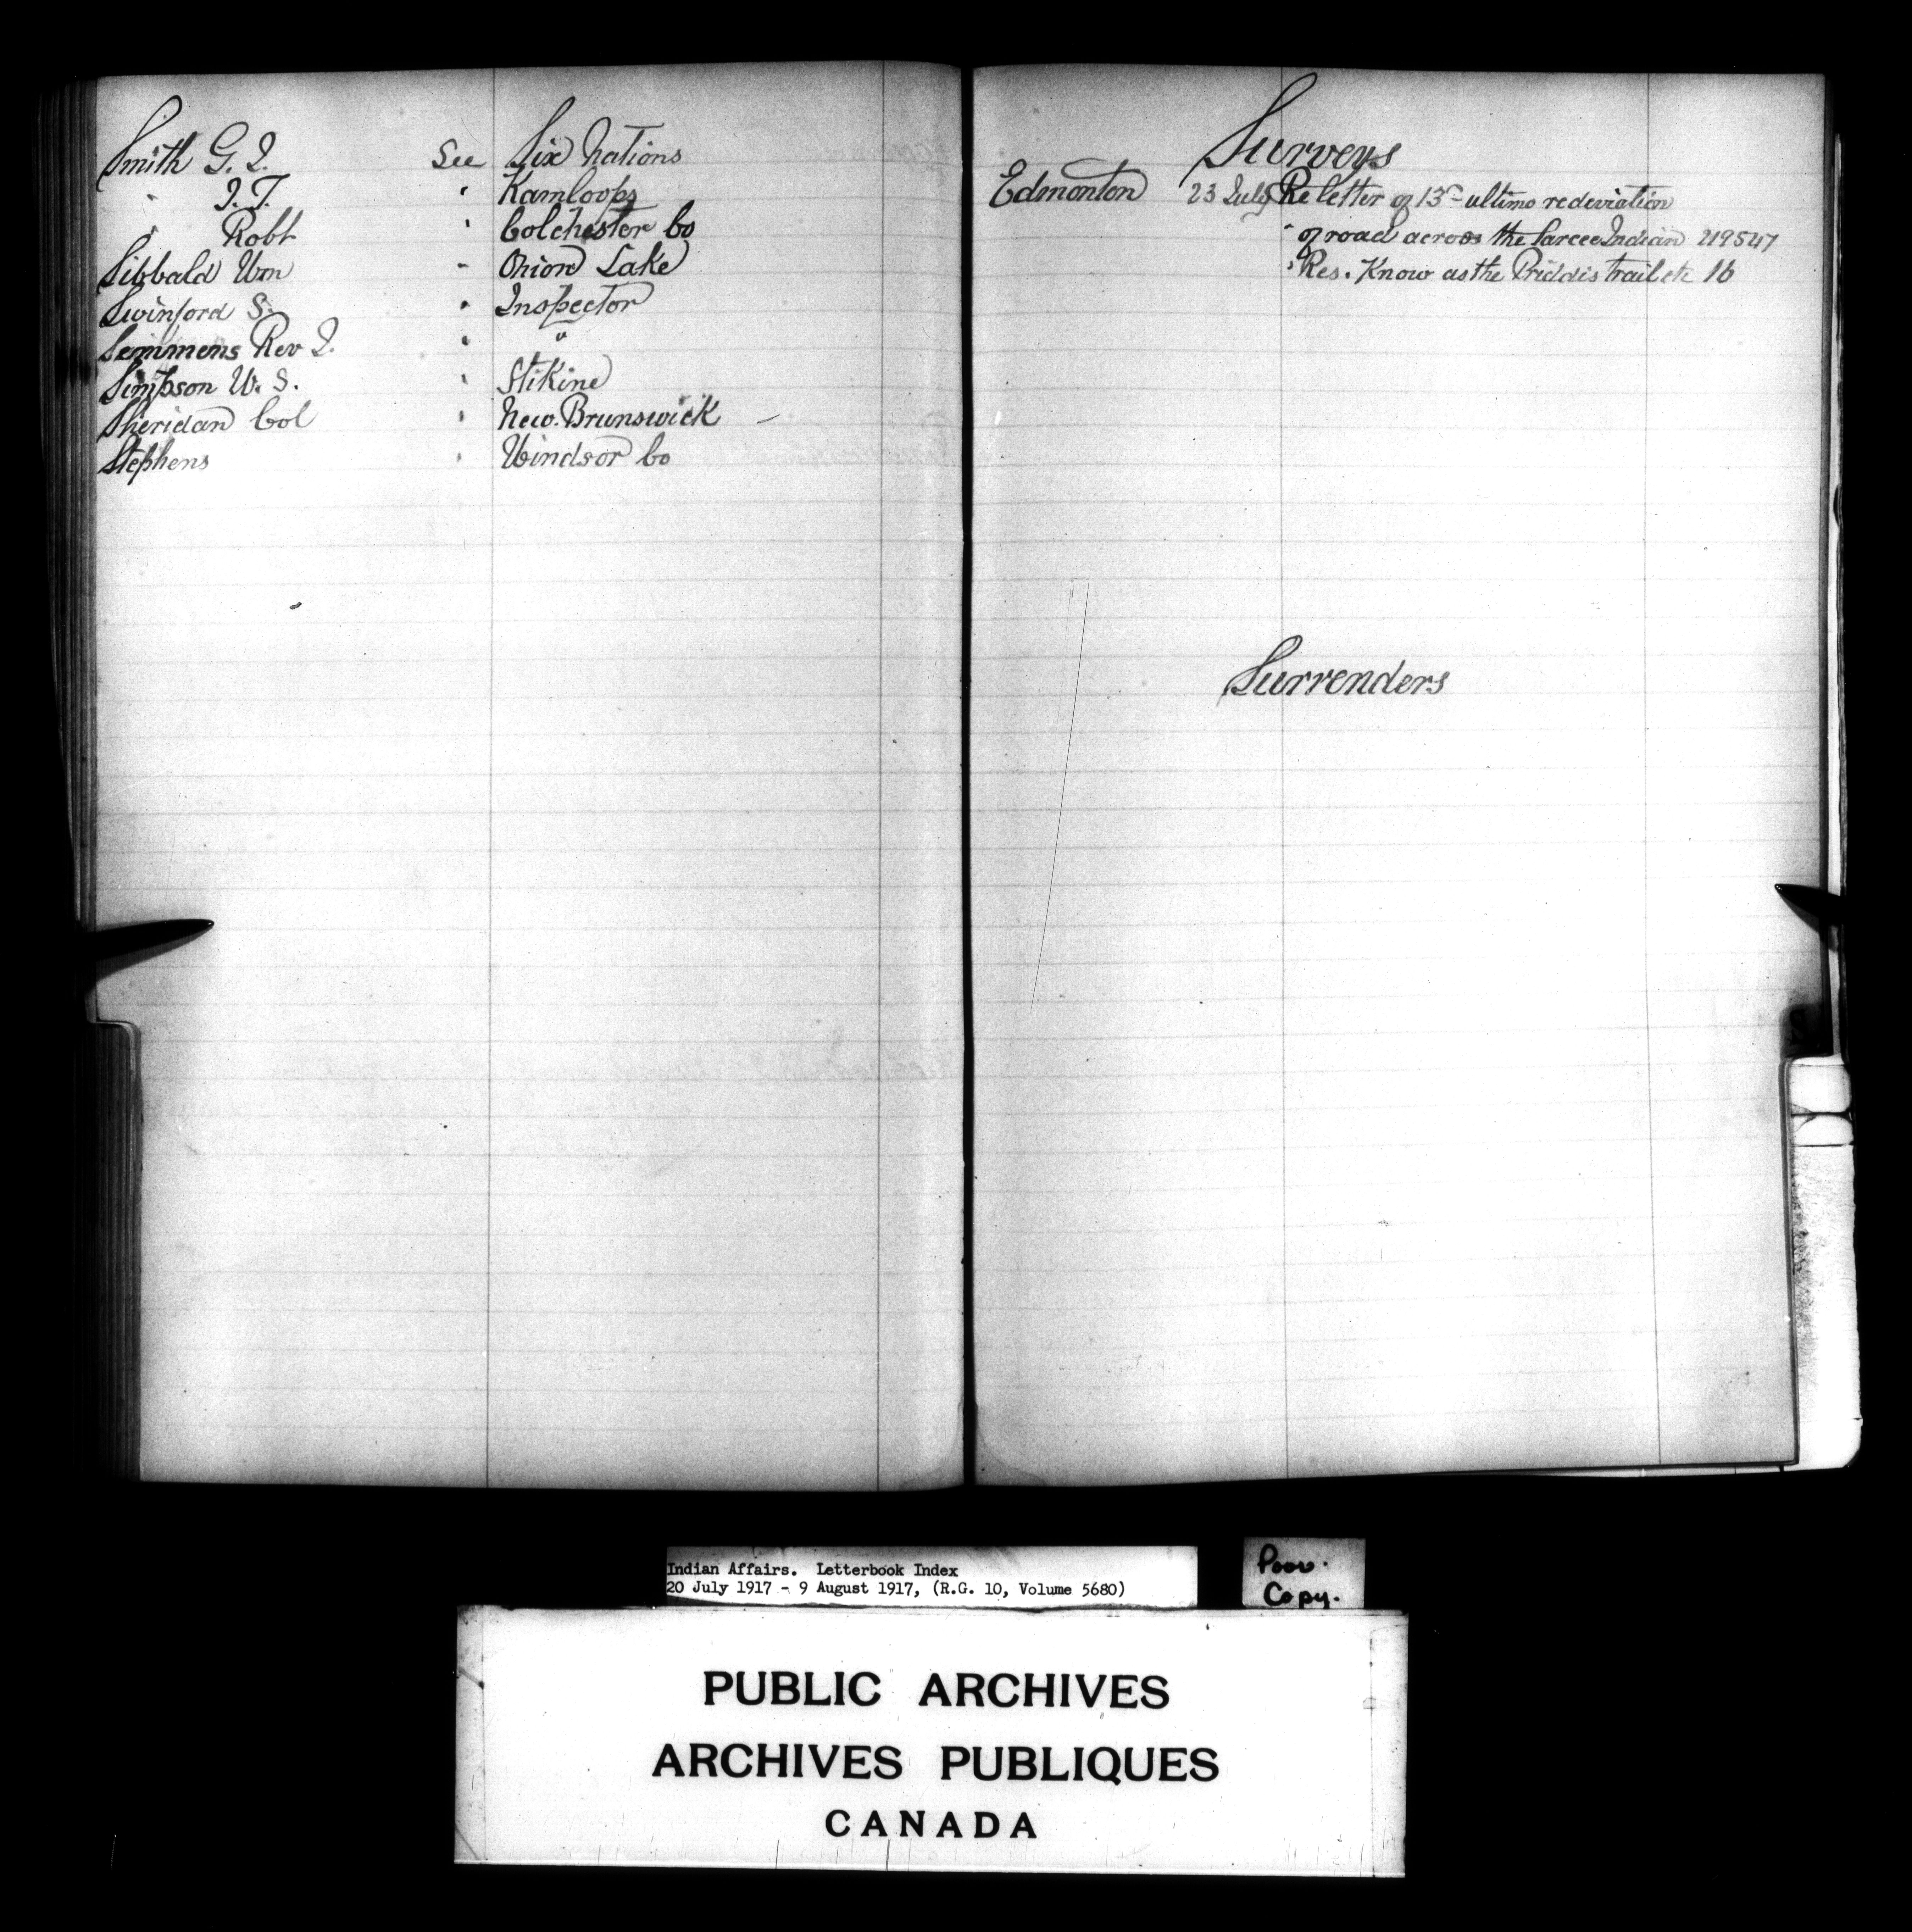 Smith G. J. See Six Nations
" J. T. " Kamloops
" Robt " Colchester Co
Sibbald Wm " Onion Lake
Swinford S. " Inspector
Semmens Rev J. " "
Simpson W. S. " Stikine
Sheridan Col " New. Brunswick
Stephens " Windsor Co
Surveys
Edmonton 23 July Re letter of 13th ultimo re deviation
" of road across the Sarcee Indian 219547
" Res. Know as the Priddis trail etc 16
Surrenders
Indian Affairs. Letterbook Index
20 July 1917 - 9 August 1917, (R.G. 10, Volume 5680)
Poor.
Copy.
PUBLIC ARCHIVES
ARCHIVES PUBLIQUES
CANADA